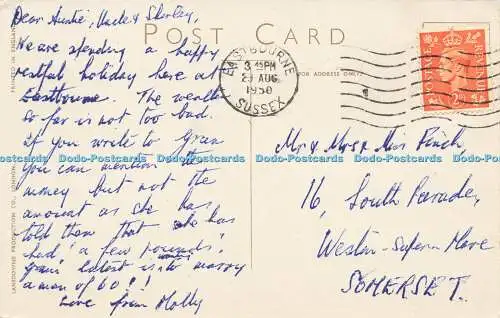 Dear Auntie, Uncle & Shirley,
We are spending a happy
restful holiday here at
Eastbourne. The weather
so far is not too bad.
if you write to Gran
you can mention the
money but not the
amount as she has
told them that she has
had "a few pounds".
latest is to marry
a man of 60!!
Love from Molly
POST CARD
FOR ADDRESS ONLY
PRINTED IN ENGLAND
LANSDOWNE PRODUCTION CO., LONDON
EASTBOURNE
3 45PM
29 AUG
1950
SUSSEX
POSTAGE
REVENUE
Mr & Mrs & Miss Finch,
16, South Parade,
Weston-Super-Mare
SOMERSET.
Dodo-Postcards Dodo-Postcards Dodo-Postcards Dodo-Postcards Dodo-Postcards Dodo-Postcards